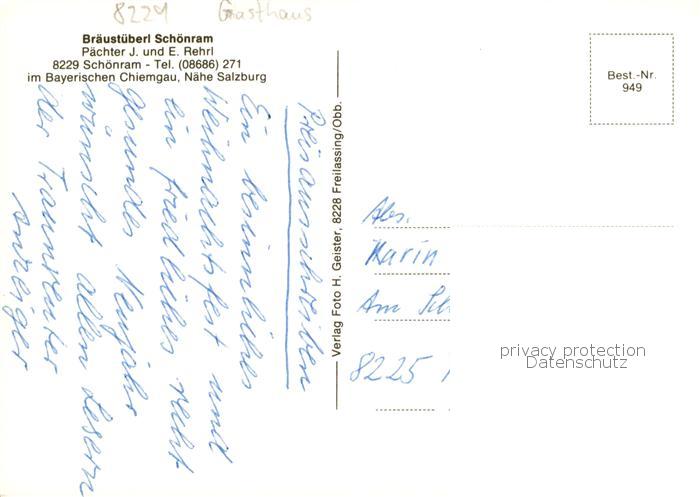 8229 Gasthaus
Bräustüberl Schönram
Pächter J. und E. Rehrl
8229 Schönram - Tel. (08686) 271
im Bayerischen Chiemgau, Nähe Salzburg
Preisausschreiben
Ein besinnliches
Weihnachtsfest und
ein friedliches recht
gesundes Neujahr
wünscht allen Lesern
der Traunreuter
Anzeiger
Verlag Foto H. Geister, 8228 Freilassing/Obb.
Best.-Nr.
949
Abs.
Karin
Am
8225
privacy protection
Datenschutz